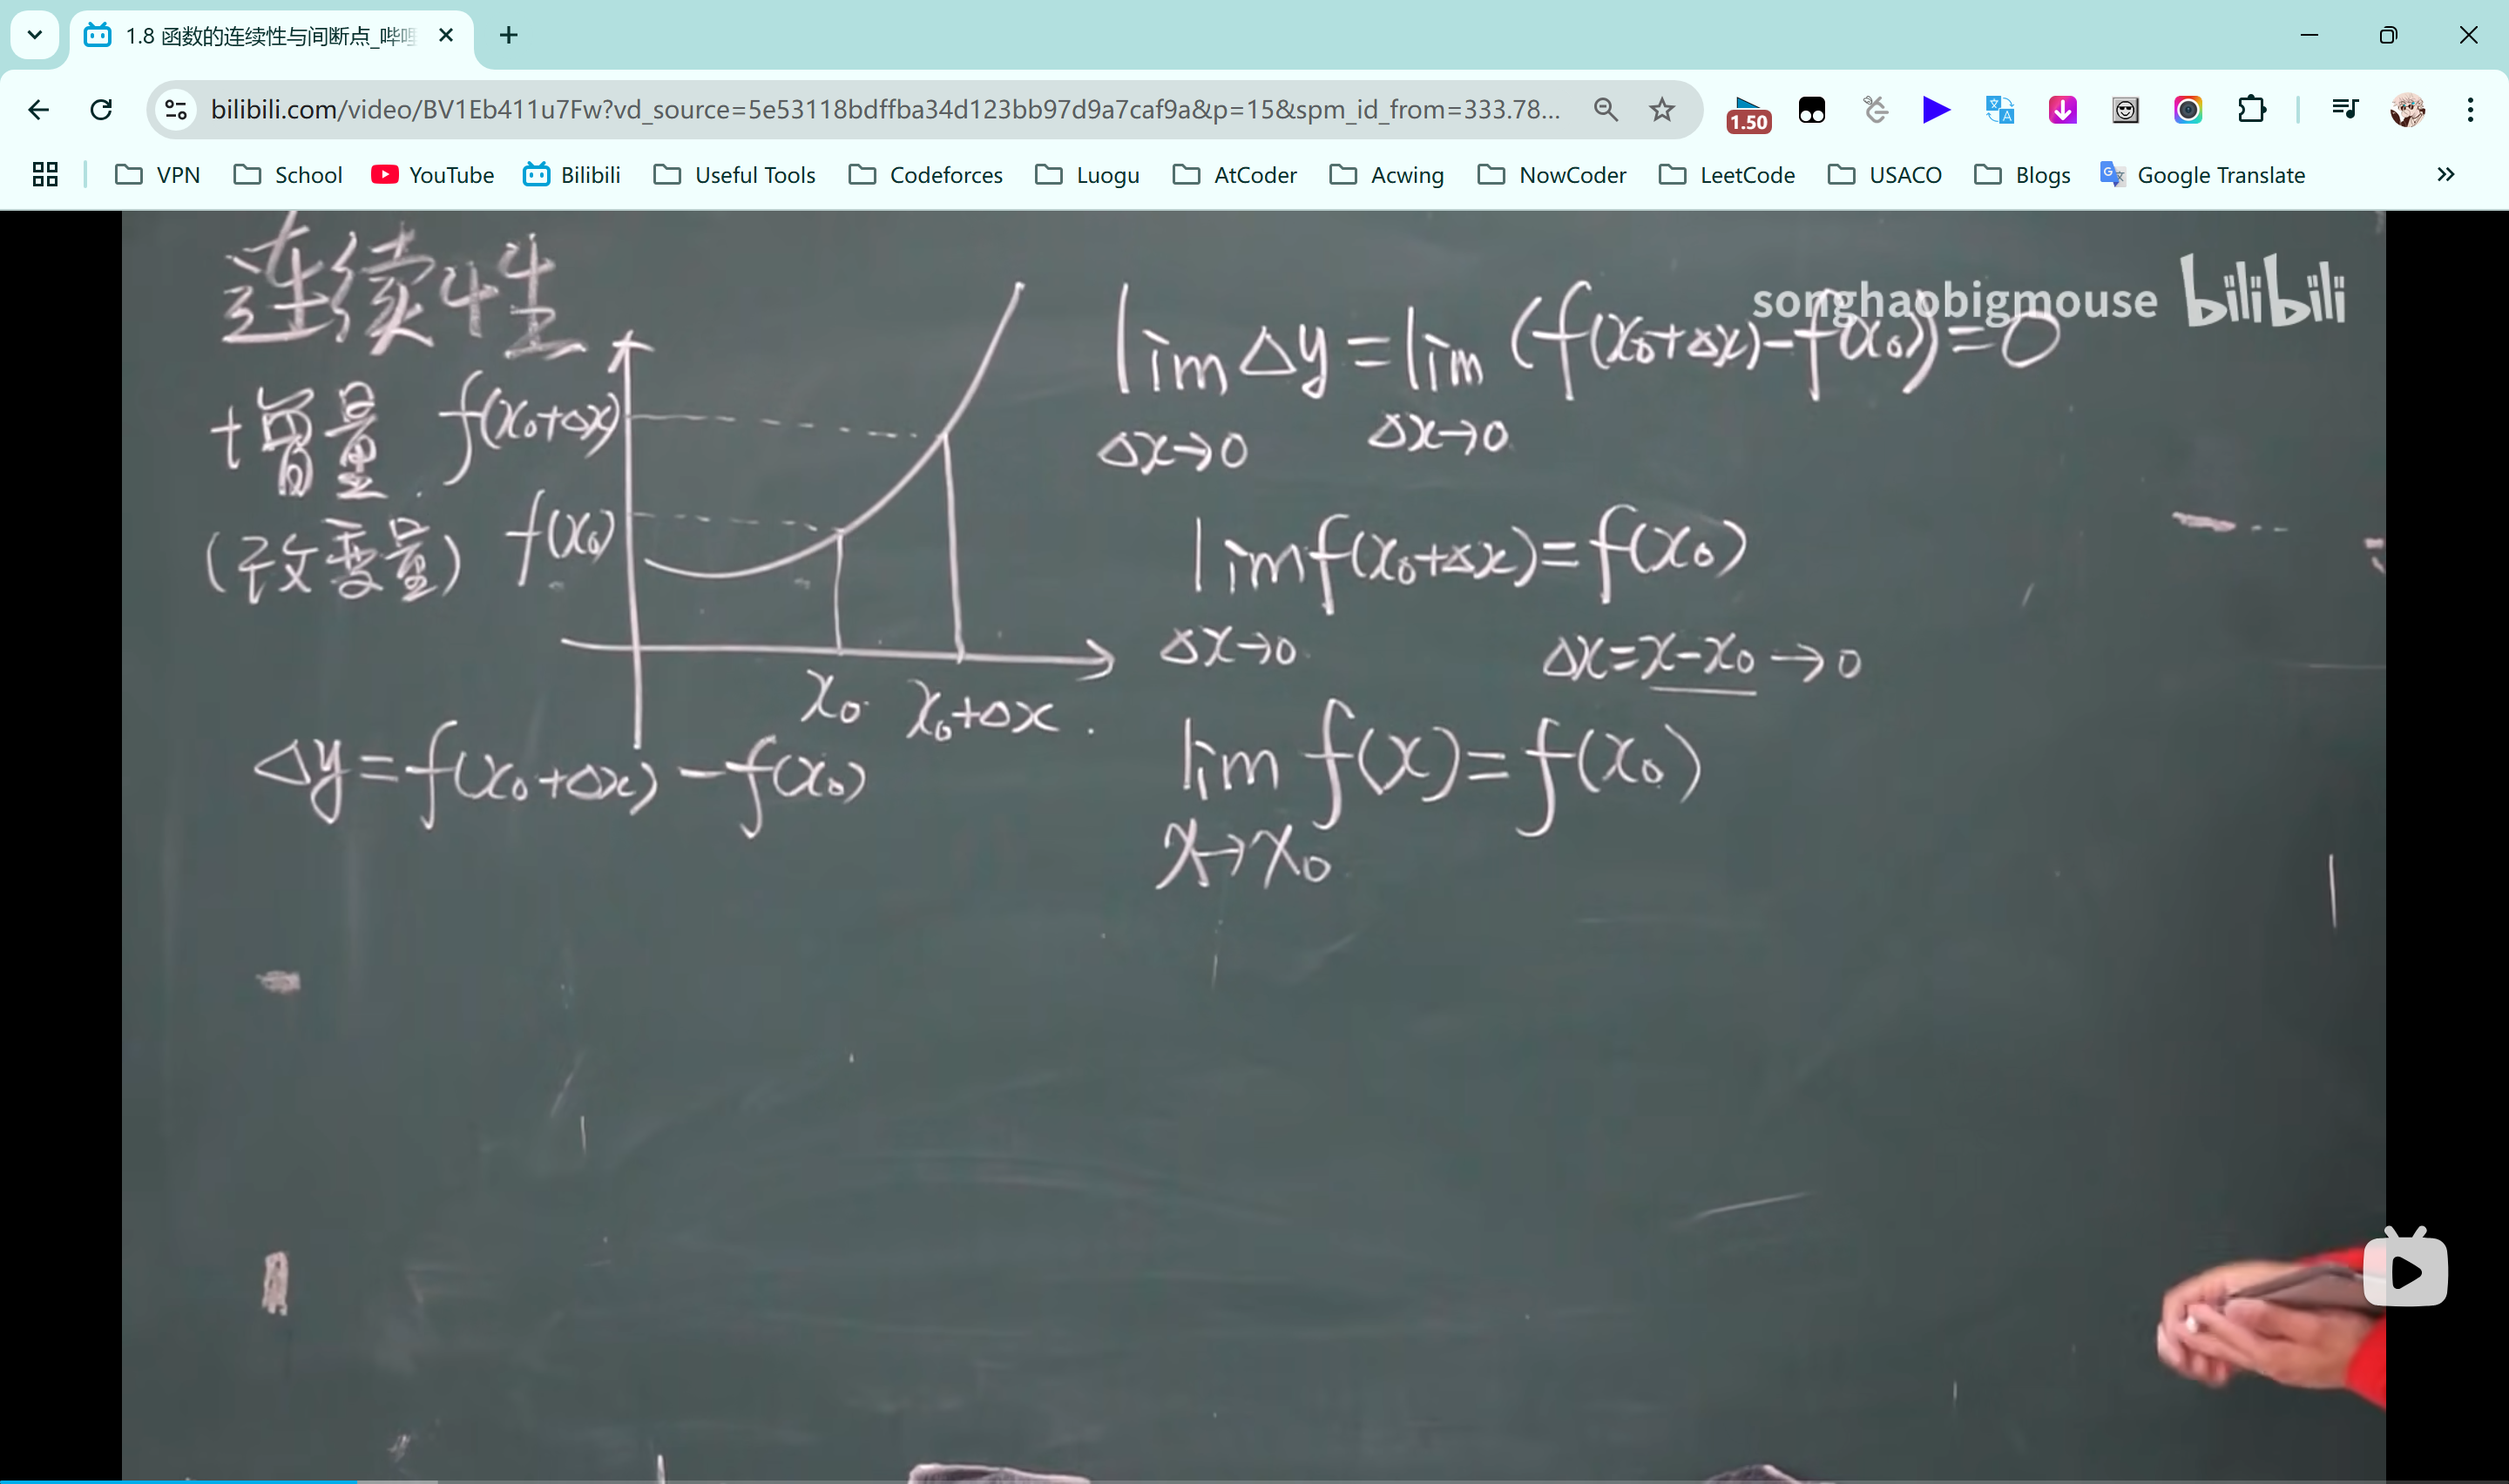 1.8 函数的连续性与间断点_哔哩
bilibili.com/video/BV1Eb411u7Fw?vd_source=5e53118bdffba34d123bb97d9a7caf9a&p=15&spm_id_from=333.78...
1.50
VPN School YouTube Bilibili Useful Tools Codeforces Luogu AtCoder Acwing NowCoder LeetCode USACO Blogs Google Translate
songhaobigmouse bilibili
连续性
增量
(改变量)
f(x₀+Δx)
f(x₀)
x₀ x₀+Δx
Δy=f(x₀+Δx)-f(x₀)
lim Δy=lim (f(x₀+Δx)-f(x₀))=0
Δx→0 Δx→0
lim f(x₀+Δx)=f(x₀)
Δx→0 Δx=x-x₀→0
lim f(x)=f(x₀)
x→x₀